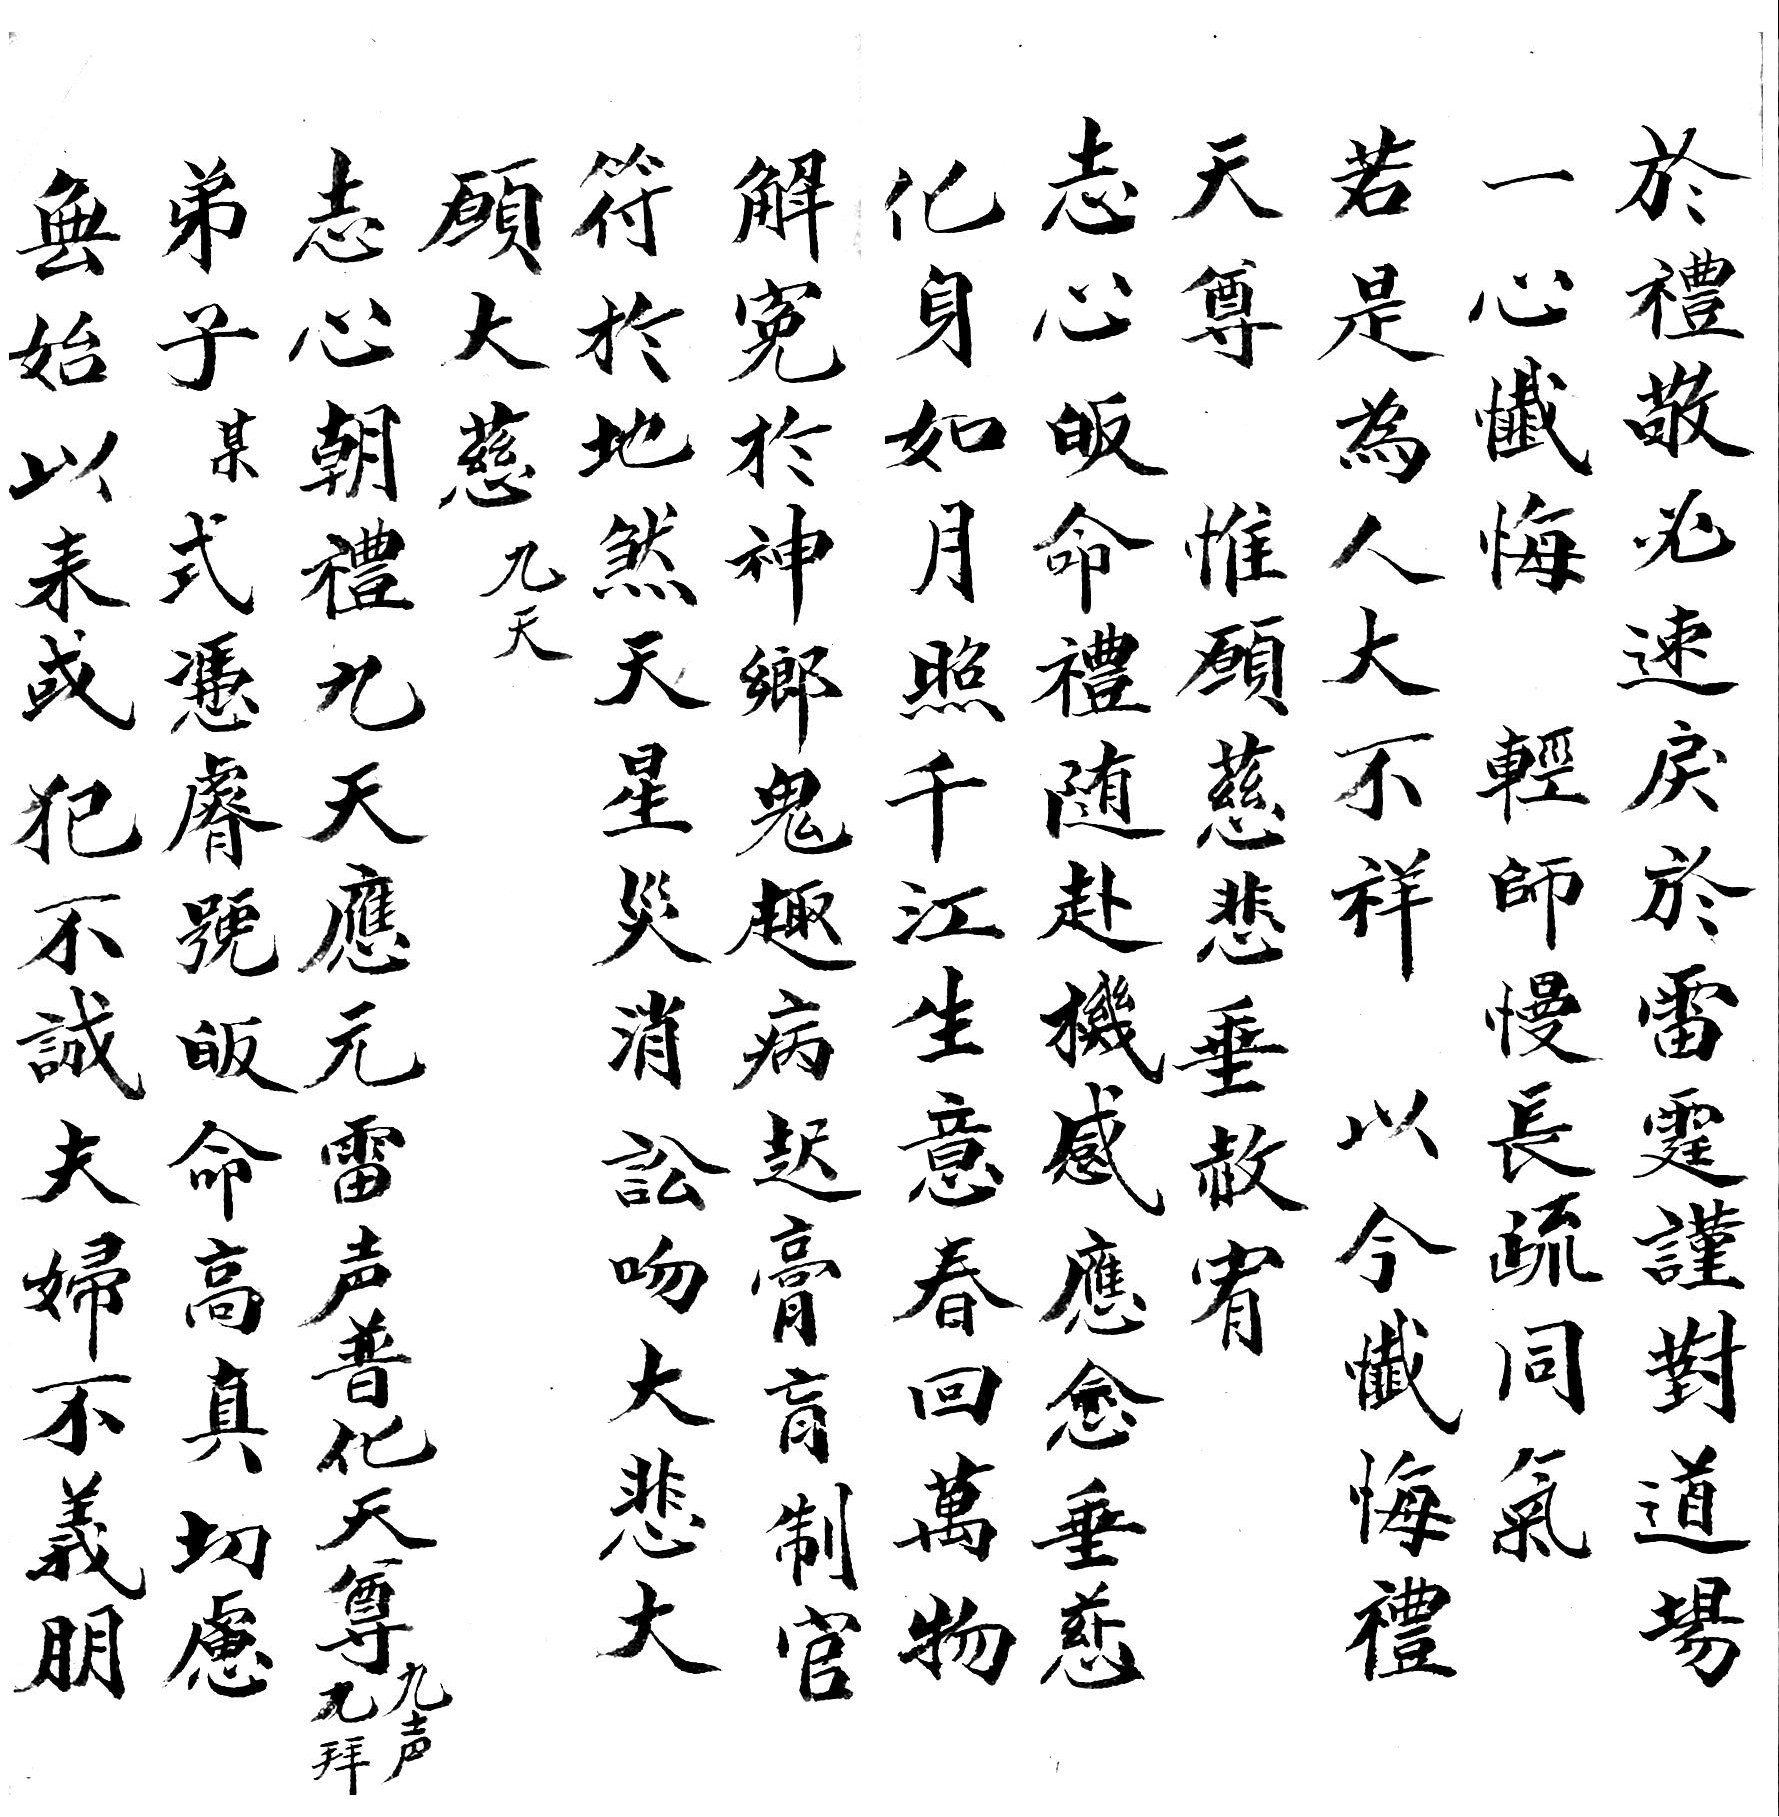 於禮敬必速戾於雷霆謹對道場
一心懺悔 輕師慢長疏同氣
若是為人大不祥 以今懺悔禮
天尊 惟願慈悲垂赦宥
志心皈命禮随赴機感應愈垂慈
化身如月照千江生意春回萬物
解寃於神鄉鬼趣病起膏肓制官
符於地煞天星災消訟吻大悲大
願大慈 九天
志心朝禮九天應元雷声普化天尊 九声 九拜
弟子 某 式憑睿號皈命高真切慮
無始以来或犯不誠夫婦不義朋